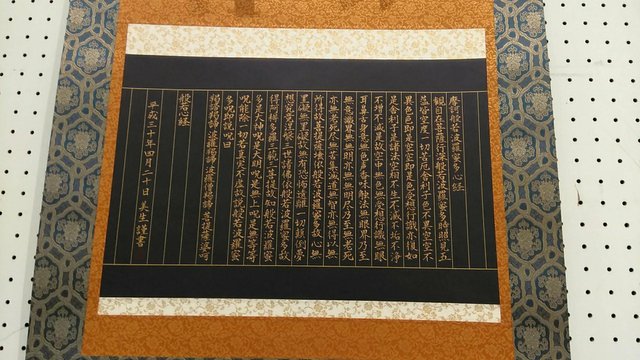 摩訶般若波羅蜜多心経
観自在菩薩行深般若波羅蜜多時照見五
蘊皆空度一切苦厄舎利子色不異空空不
異色色即是空空即是色受想行識亦復如
是舎利子是諸法空相不生不滅不垢不浄
不増不減是故空中無色無受想行識無眼
耳鼻舌身意無色声香味触法無眼界乃至
無意識界無無明亦無無明尽乃至無老死
亦無老死尽無苦集滅道無智亦無得以無
所得故菩提薩埵依般若波羅蜜多故心無
罣礙無罣礙故無有恐怖遠離一切顛倒夢
想究竟涅槃三世諸仏依般若波羅蜜多故
得阿耨多羅三藐三菩提故知般若波羅蜜
多是大神呪是大明呪是無上呪是無等等
呪能除一切苦真実不虚故説般若波羅蜜
多呪即説呪曰
羯諦羯諦波羅羯諦波羅僧羯諦菩提薩婆訶
般若心経
平成三十年四月二十日 美生謹書